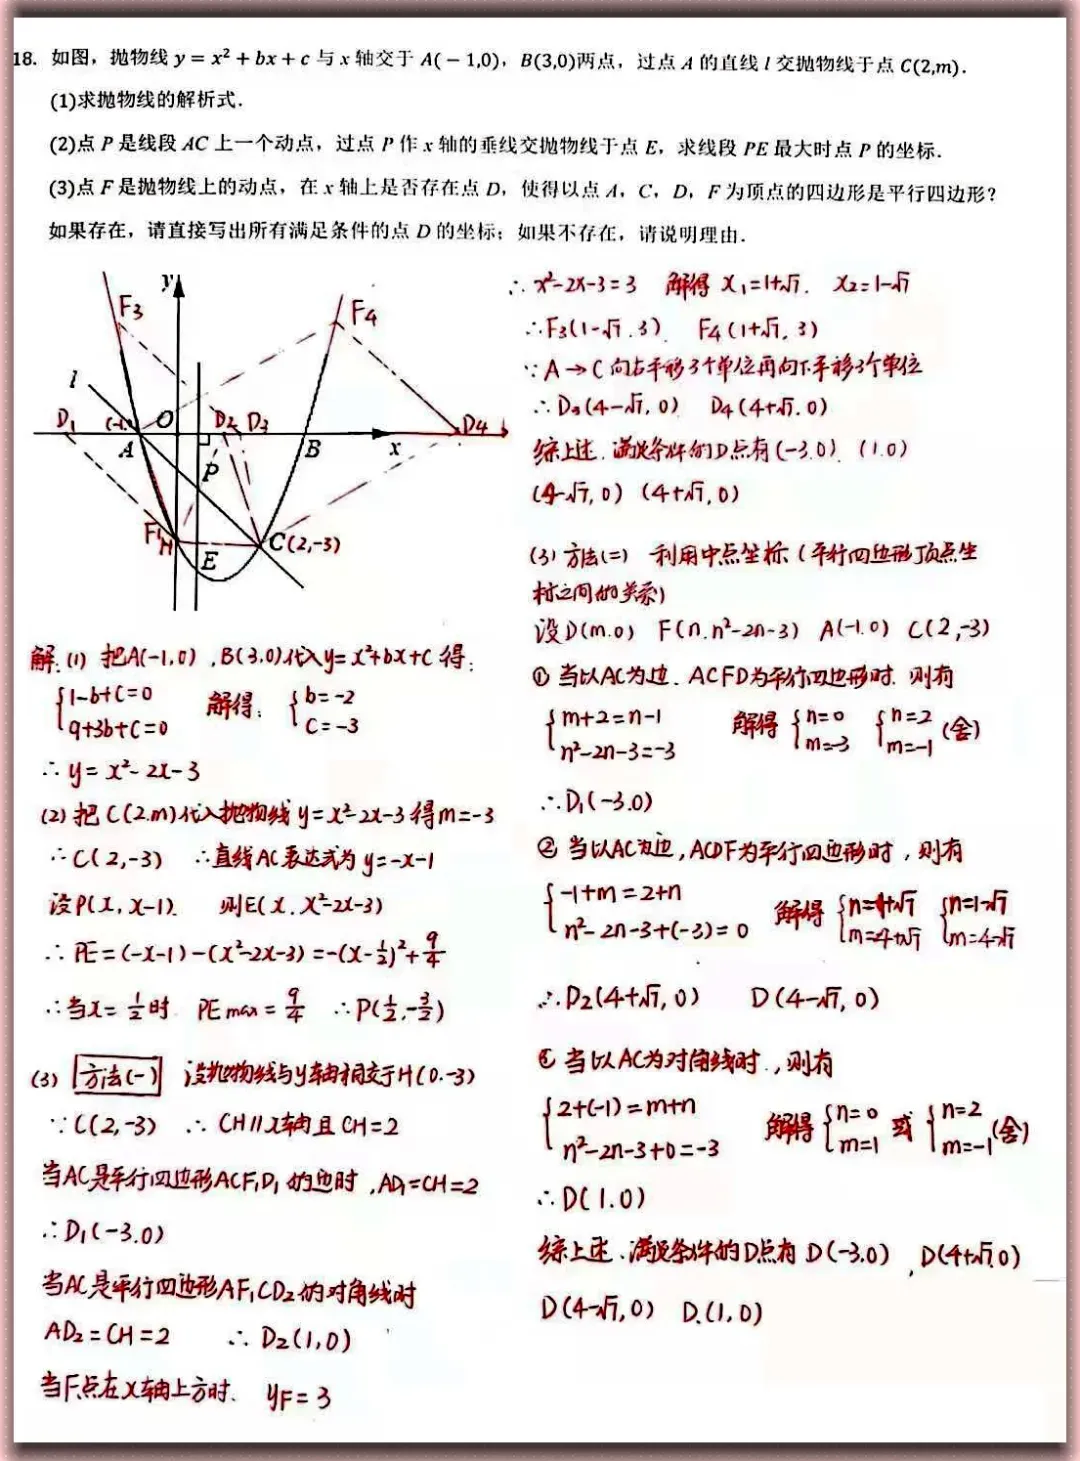 18. 如图，抛物线 y = x² + bx + c 与 x 轴交于 A( − 1,0)，B(3,0)两点，过点 A 的直线 l 交抛物线于点 C(2,m).
(1)求抛物线的解析式.
(2)点 P 是线段 AC 上一个动点，过点 P 作 x 轴的垂线交抛物线于点 E，求线段 PE 最大时点 P 的坐标.
(3)点 F 是抛物线上的动点，在 x 轴上是否存在点 D，使得以点 A，C，D，F 为顶点的四边形是平行四边形？
如果存在，请直接写出所有满足条件的点 D 的坐标；如果不存在，请说明理由.
y
F3
F4
l
D1
O
D2
D3
D4
A
B
x
P
F1
H
C(2,-3)
E
解: (1) 把A(-1,0) ,B(3.0)代入y=x²+bx+C 得:
{1-b+C=0
9+3b+C=0
解得: {b=-2
C=-3
∴ y= x²- 2x-3
(2) 把 C(2.m)代入抛物线 y=x²-2x-3得m=-3
∴C( 2,-3) ∴直线AC表达式为 y=-x-1
设P(x, x-1). 则E(x. x²-2x-3)
∴ PE=(-x-1)-(x²-2x-3)=-(x-1/2)²+9/4
∴当x= 1/2时 PE max = 9/4 ∴P(1/2,-3/2)
(3) 方法(一) 设抛物线与y轴相交于H(0.-3)
∵C(2,-3) ∴ CH//x轴且 CH=2
当AC是平行四边形ACF1D1 的边时 ,AD1=CH=2
∴D1(-3.0)
当AC是平行四边形AF1CD2的对角线时
AD2=CH=2 ∴ D2(1,0)
当F点在x轴上方时. yF=3
∴ x²-2x-3=3 解得 x1=1+√7. x2=1-√7
∴F3(1-√7.3) F4(1+√7,3)
∵A→C向右平移3个单位再向下平移3个单位
∴D3(4-√7,0) D4(4+√7.0)
综上述.满足条件的D点有(-3.0) (1.0)
(4-√7,0) (4+√7,0)
(3) 方法(二) 利用中点坐标(平行四边形顶点坐
标之间的关系)
设D(m.0) F(n.n²-2n-3) A(-1.0) C(2,-3)
① 当以AC为边. ACFD为平行四边形时. 则有
{m+2=n-1
n²-2n-3=-3
解得 {n=0
m=-3
{n=2
m=-1 (舍)
∴D1(-3.0)
② 当以AC为边,ACDF为平行四边形时，则有
{-1+m=2+n
n²-2n-3+(-3)=0
解得 {n=1+√7
m=4+√7
{n=1-√7
m=4-√7
∴D2(4+√7,0) D(4-√7,0)
当以AC为对角线时.,则有
{2+(-1)=m+n
n²-2n-3+0=-3
解得{n=0
m=1
或 {n=2
m=-1(舍)
∴D(1.0)
综上述、满足条件的D点有 D(-3.0) ,D(4+√7.0)
D(4-√7,0) D.(1,0)